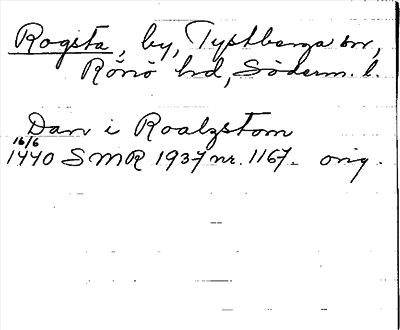 Rogsta, by, Tystberga sn,
Rönö hd, Söderm. l.
Dan i Roalzstom
16/6
1440 SMR 1937 nr. 1167. orig.